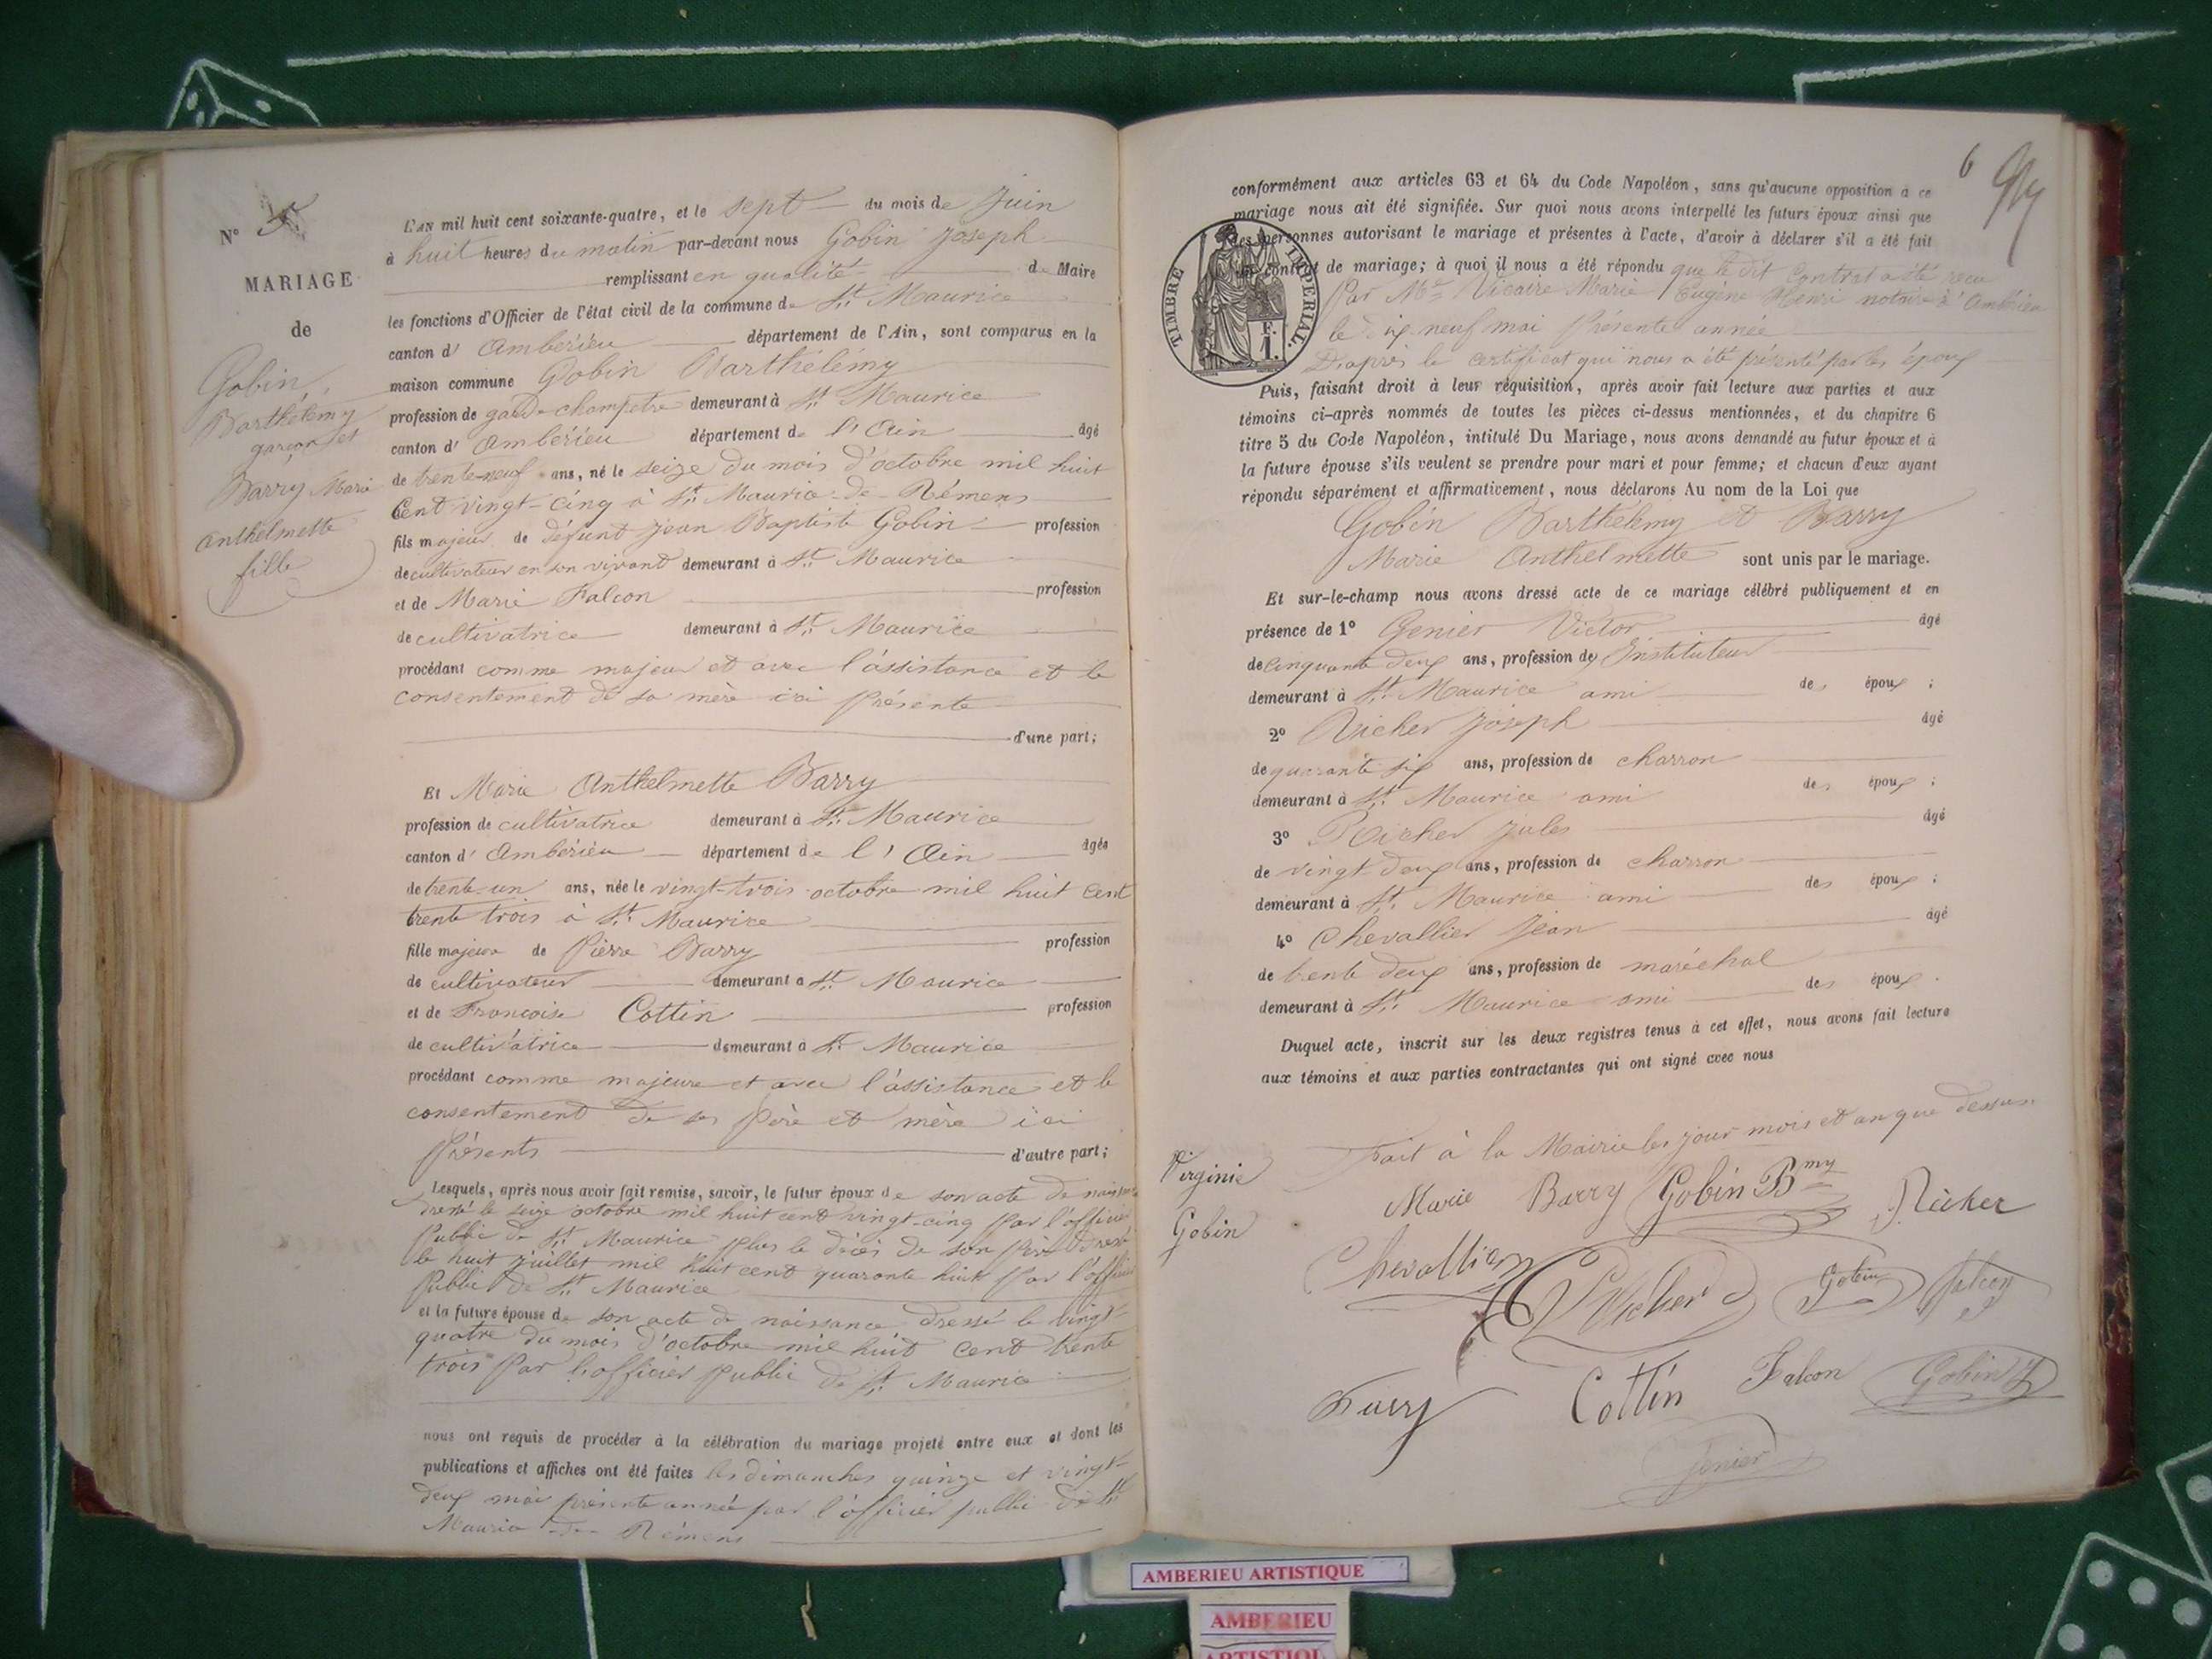 N° 5
MARIAGE
de
Gobin,
Barthélemy
garçon et
Barry Marie
Anthelmette
fille
L'AN mil huit cent soixante-quatre, et le sept du mois de Juin
à huit heures du matin par-devant nous Gobin Joseph
remplissant en qualité de Maire
les fonctions d'Officier de l'état civil de la commune de St Maurice
canton d' Ambérieu département de l'Ain, sont comparus en la
maison commune Gobin Barthélémy
profession de garde champetre demeurant à St Maurice
canton d' Ambérieu département de l'Ain âgé
de trente-neuf ans, né le seize du mois d'octobre mil huit
Cent vingt-cinq à St Maurice-de-Rémens
fils majeur de défunt Jean Baptiste Gobin profession
de cultivateur en son vivant demeurant à St Maurice
et de Marie Falcon profession
de cultivatrice demeurant à St Maurice
procédant comme majeur et avec l'assistance et le
consentement de sa mère ici présente
d'une part;
Et Marie Anthelmette Barry
profession de cultivatrice demeurant à St Maurice
canton d' Ambérieu département de l'Ain âgée
de trente-un ans, née le vingt-trois octobre mil huit cent
trente trois à St Maurice
fille majeure de Pierre Barry profession
de cultivateur demeurant à St Maurice
et de Françoise Cottin profession
de cultivatrice demeurant à St Maurice
procédant comme majeure et avec l'assistance et le
consentement de ses père et mère ici
présents d'autre part;
Lesquels, après nous avoir fait remise, savoir, le futur époux de son acte de naissance
dressé le seize octobre mil huit cent vingt-cinq par l'officier
public de St Maurice plus le décès de son père dressé
le huit juillet mil huit cent quarante huit par l'officier
public de St Maurice
et la future épouse de son acte de naissance dressé le vingt-
quatre du mois d'octobre mil huit cent trente
trois par l'officier public de St Maurice
nous ont requis de procéder à la célébration du mariage projeté entre eux et dont les
publications et affiches ont été faites les dimanches quinze et vingt-
deux mai présente année par l'officier public de St
Maurice-de-Rémens
6
conformément aux articles 63 et 64 du Code Napoléon, sans qu'aucune opposition à ce
mariage nous ait été signifiée. Sur quoi nous avons interpellé les futurs époux ainsi que
les personnes autorisant le mariage et présentes à l'acte, d'avoir à déclarer s'il a été fait
un contrat de mariage; à quoi il nous a été répondu que le dit Contrat a été reçu
par Me Vicaire Marie Eugène Henri notaire à Ambérieu
le dix-neuf mai présente année
D'après le certificat qui nous a été présenté par les époux
TIMBRE IMPERIAL.
F.
1.
Puis, faisant droit à leur réquisition, après avoir fait lecture aux parties et aux
témoins ci-après nommés de toutes les pièces ci-dessus mentionnées, et du chapitre 6
titre 5 du Code Napoléon, intitulé Du Mariage, nous avons demandé au futur époux et à
la future épouse s'ils veulent se prendre pour mari et pour femme; et chacun d'eux ayant
répondu séparément et affirmativement, nous déclarons Au nom de la Loi que
Gobin Barthélemy et Barry
Marie Anthelmette sont unis par le mariage.
Et sur-le-champ nous avons dressé acte de ce mariage célébré publiquement et en
présence de 1° Genier Victor âgé
de cinquante deux ans, profession de Instituteur
demeurant à St Maurice ami des époux;
2° Richer Joseph âgé
de quarante six ans, profession de charron
demeurant à St Maurice ami des époux;
3° Richer Jules âgé
de vingt deux ans, profession de charron
demeurant à St Maurice ami des époux;
4° Chevallier Jean âgé
de trente deux ans, profession de maréchal
demeurant à St Maurice ami des époux.
Duquel acte, inscrit sur les deux registres tenus à cet effet, nous avons fait lecture
aux témoins et aux parties contractantes qui ont signé avec nous
Fait à la Mairie les jour mois et an que dessus.
Virginie
Gobin
Marie Barry Gobin Bmy Richer
Chevallier Richer Gobin Falcon
Barry Cottin Falcon Gobin J
Genier
AMBERIEU ARTISTIQUE
AMBERIEU
ARTISTIQUE